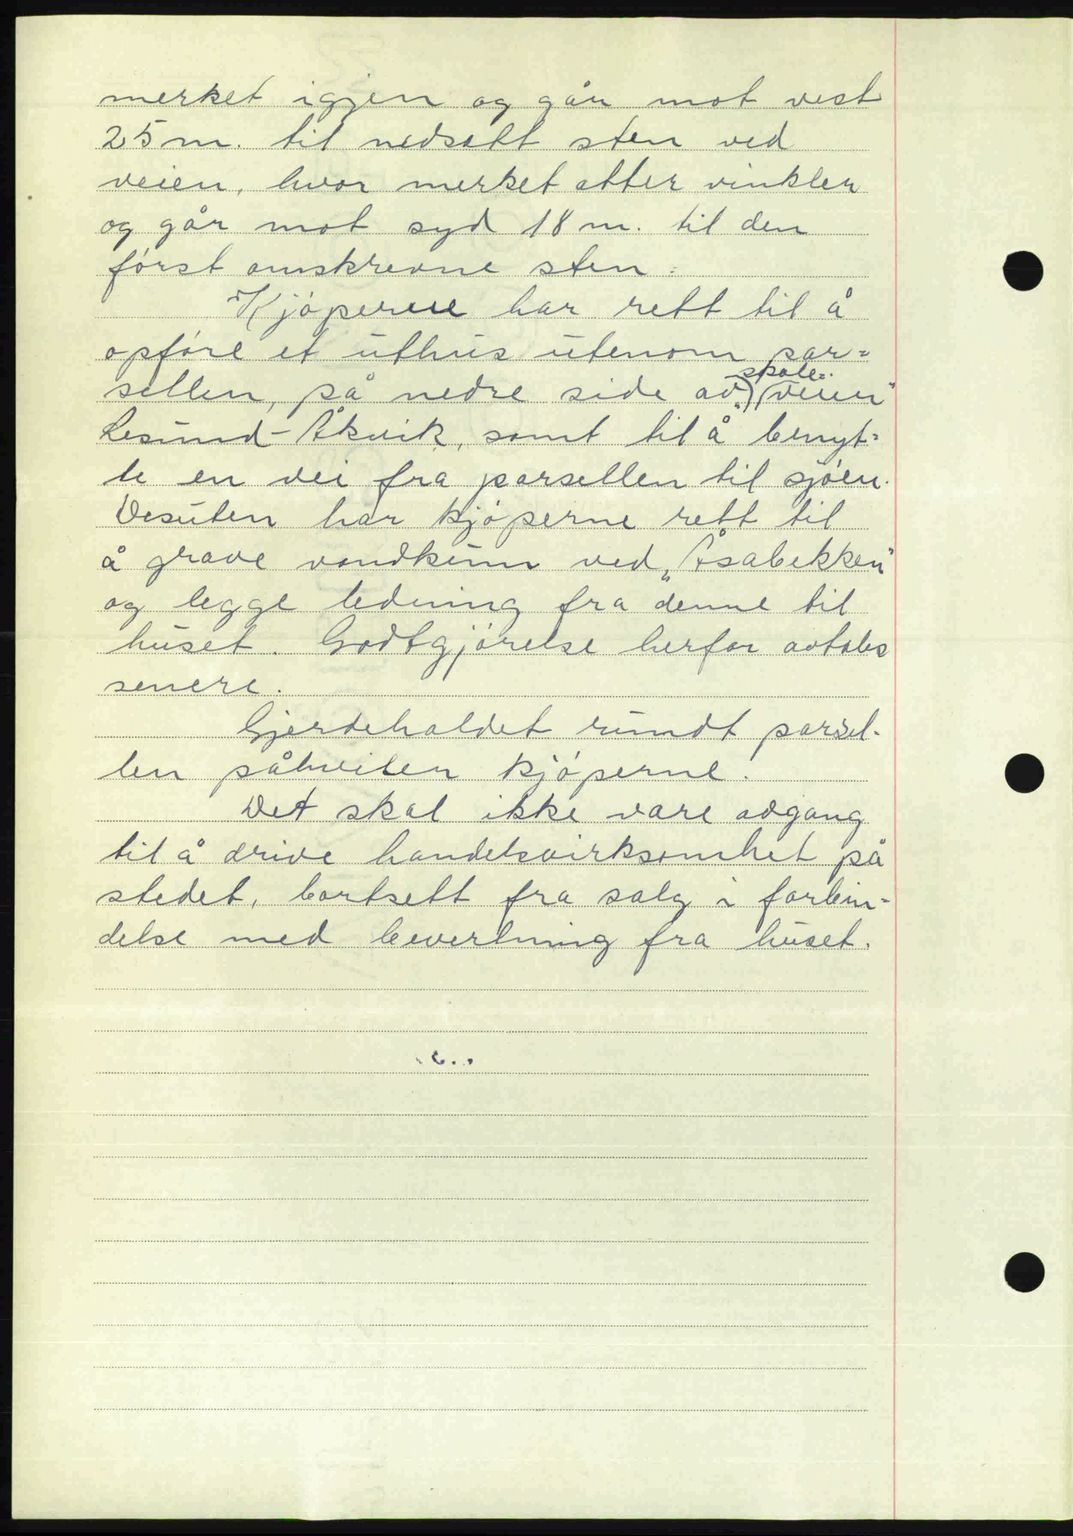 merket igjen og går mot vest
25 m. til nedsatt sten ved
veien, hvor merket etter vinkler
og går mot syd 18 m. til den
først omskrevne sten.
Kjøperne har rett til å
opføre et uthus utenom par=
skole=
sellen, på nedre side av "veien"
Lesund - Åkvik, samt til å benyt=
te en vei fra parsellen til sjøen.
Desuten har kjøperne rett til
å grave vandkum ved „Åsabekken"
og legge ledning fra denne til
huset. Godtgjørelse herfor avtales
senere.
Gjerdeholdet rundt parsel-
len påhviler kjøperne.
Det skal ikke være adgang
til å drive handelsvirksomhet på
stedet, bortsett fra salg i forbin=
delse med bevertning fra huset.